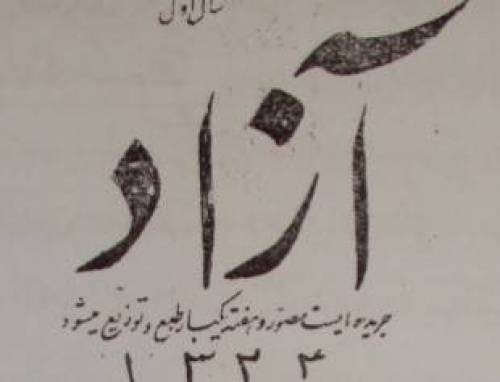 سال اول
آزاد
جریده ایست مصور و هفته یکبار طبع و توزیع میشود
۱۳۲۴